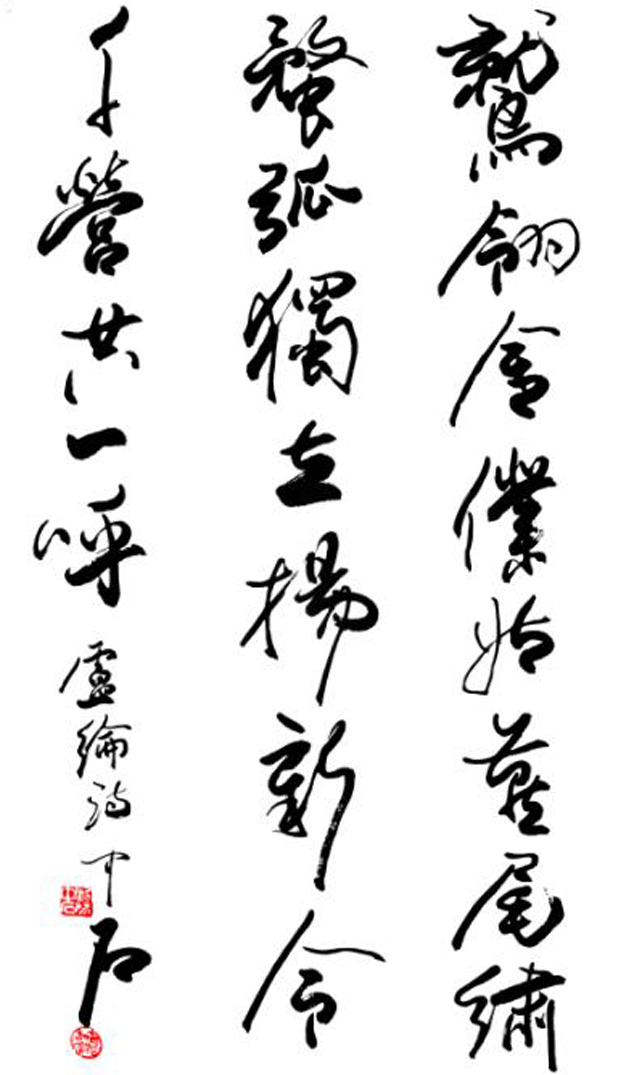 鷲翎金僕姑燕尾繡
蝥弧獨立揚新令
千營共一呼 盧綸詩 中石